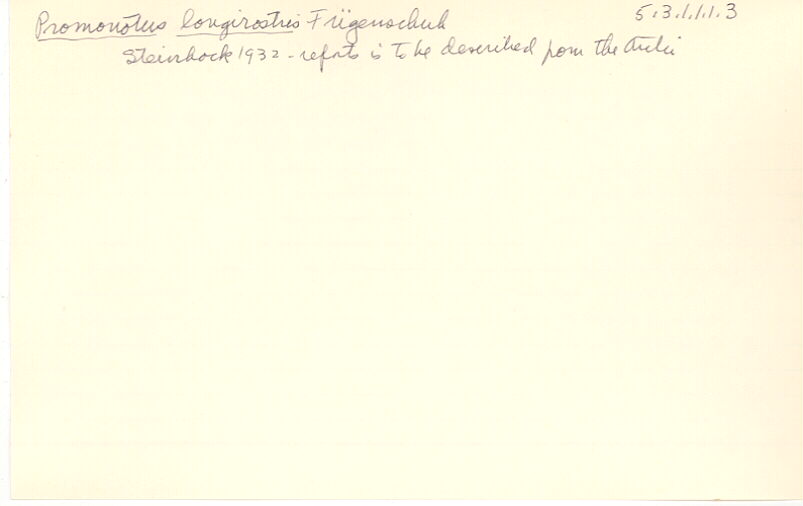 Promonotus longirostris Frügenschuh 5.3.1.1.1.3
Steinbock 1932 - reports is to be described from the Arctic